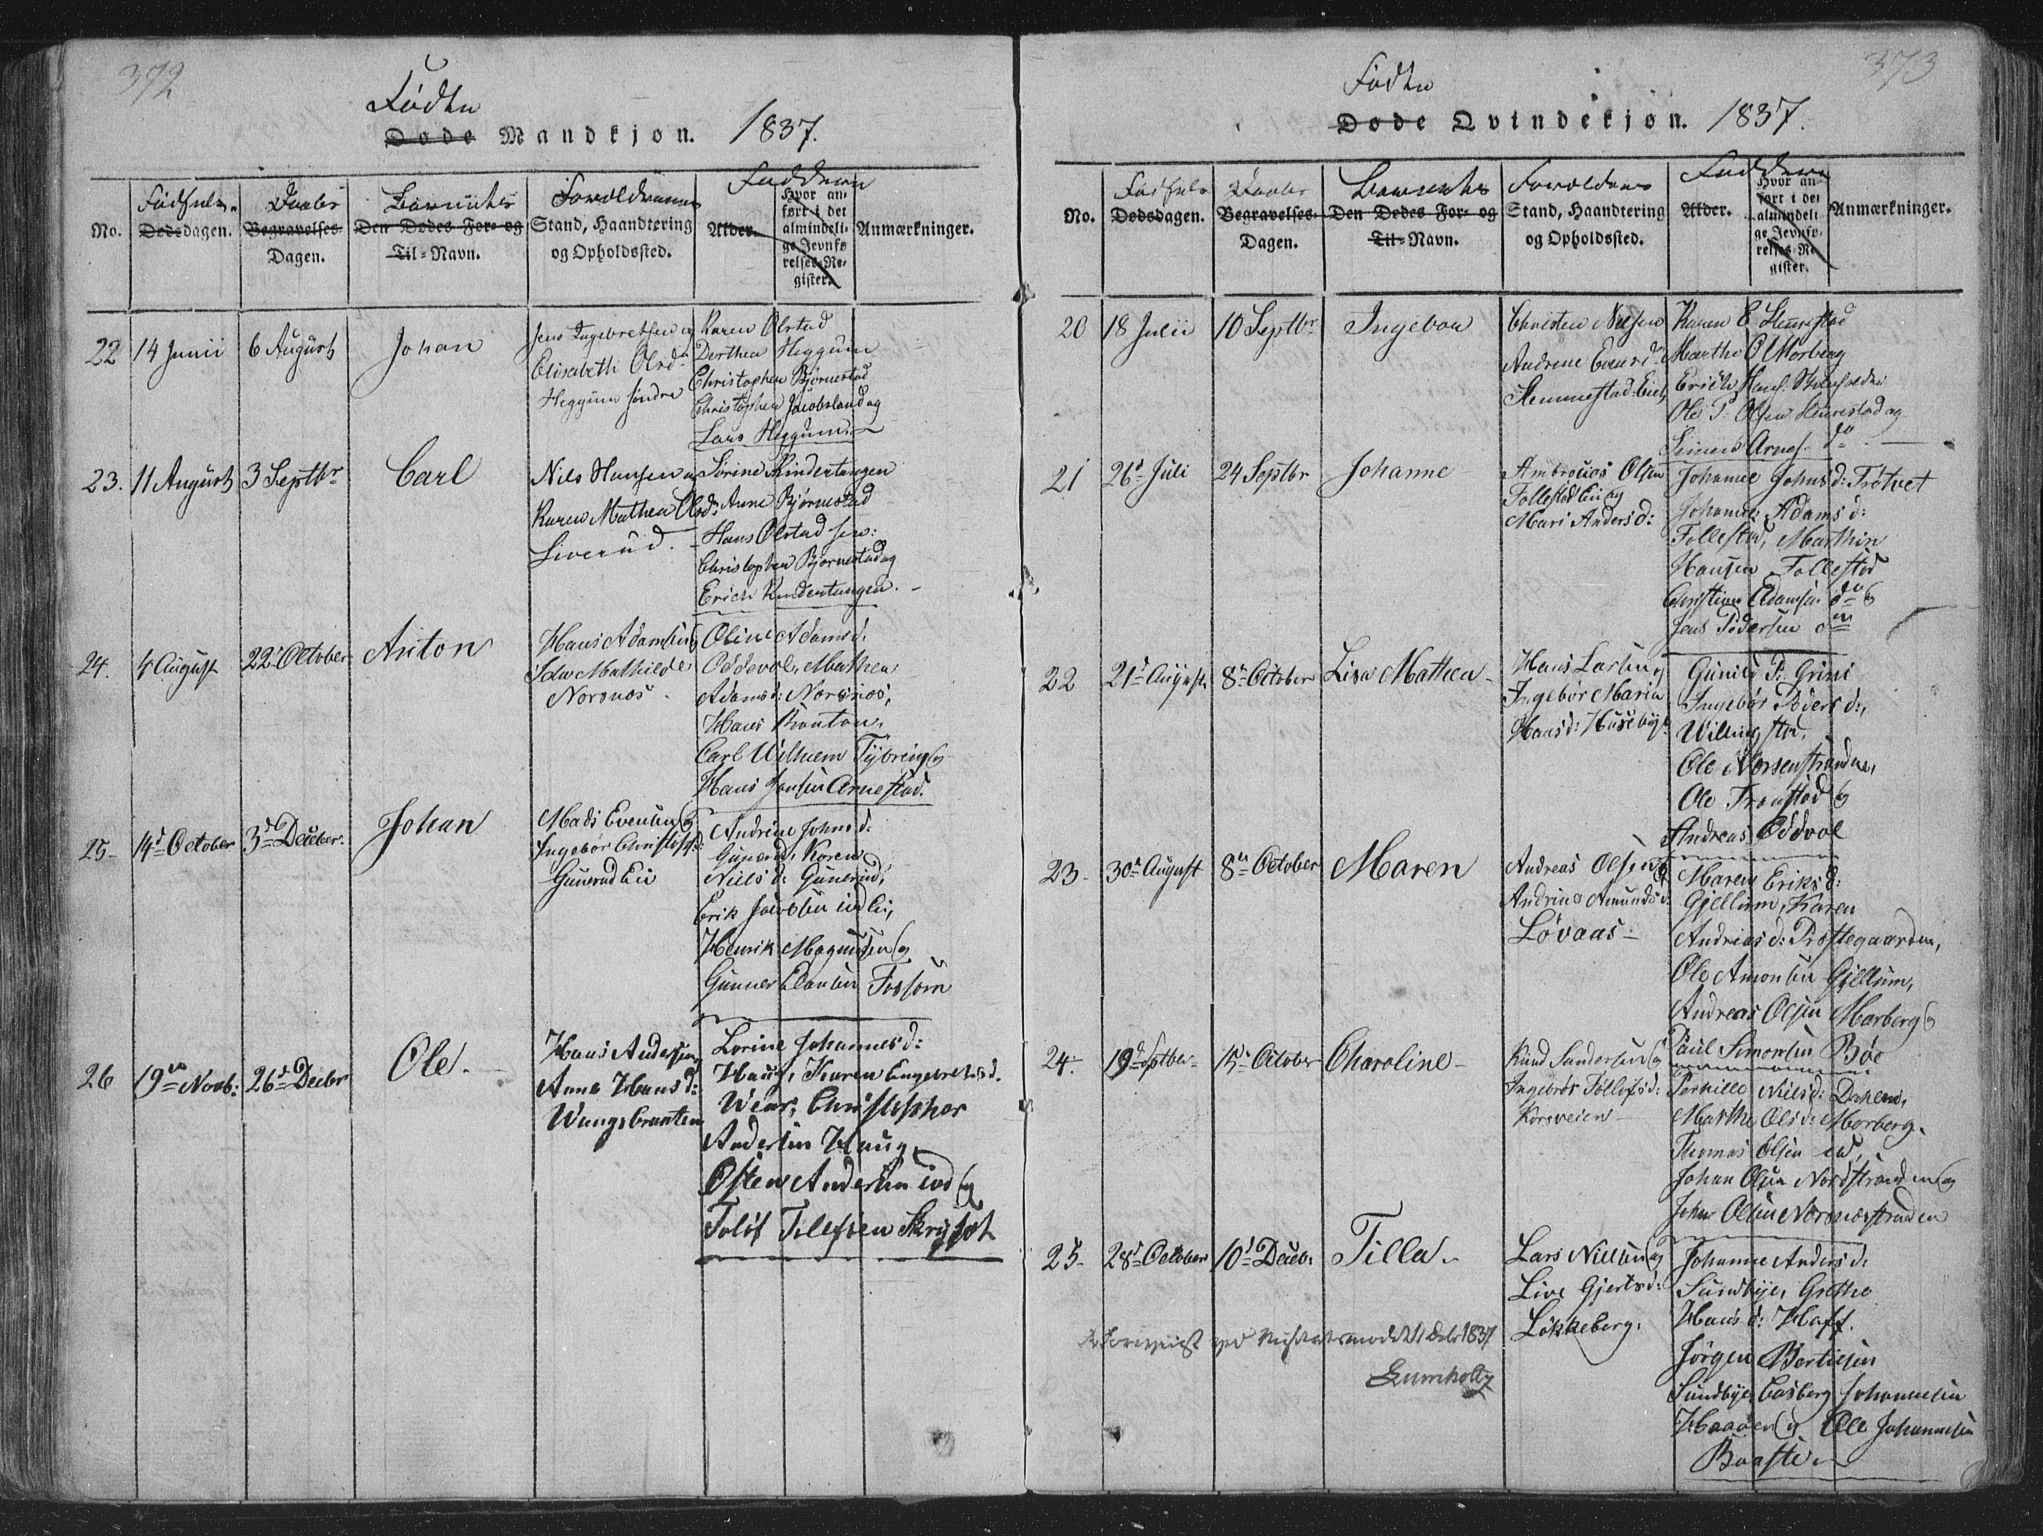 372
Fødte
Døde Mandkjøn. 1837.
No.
Fødsels-
Dødsdagen.
Daabs
Begravelses-
Dagen.
Barnets
Den Dødes For- og
Til-Navn.
Forældrenes
Stand, Haandtering
og Opholdssted.
Faddere
Alder.
Hvor an-
ført i det
almindeli-
ge Jevnfø-
relses-Re-
gister.
Anmærkninger.
22 14 Junii 6 August Johan
Jens Ingebretsen og
Elisabeth Olsd.
Heggum søndre
Karen Olstad
Dorthea Heggum
Christopher Bjørnestad
Christopher Jacobsland og
Lars Heggum.
23. 11 August 3 Septbr Carl
Nils Hansen og
Karen Mathea Olsd:
Liverud.
Sørine Kindertangen
Anne Bjørnestad
Hans Olstad sen:
Christopher Bjørnestad og
Erich Kindertangen.
24. 4 August 22 October Anton
Hans Adamsen og
Ida Mathilde
Norsnos.
Oline Adamsd.
Oddevol, Mathea
Adamsd: Norsnos,
Hans Brauton,
Carl Wilhelm Tybring og
Hans Jansen Arnestad.
25- 14d October 3d Decber. Johan
Mads Evensen og
Ingebor Christophd:
Gunerud Eie
Andrine Johnsd:
Gunerud, Karen
Nielsd: Gunerud,
Erik Jacobsen ibd Ei,
Henrik Magnussen og
Gunner Clausen Fossum
26 19de Novb: 26d Decbr Ole.
Hans Andersen
Anne Hansd:
Wangsbraaten
Lorine Johannesd:
Haug, Karen Engebretsd.
Wear, Christopher
Andersen Haug,
Østen Andersen ibd og
Tolof Tolefsen Skryset
373
Fødte
Døde Qvindekjøn. 1837.
No.
Fødsels-
Dødsdagen.
Daabs
Begravelses-
Dagen.
Barnets
Den Dødes For- og
Til-Navn.
Forældrenes
Stand, Haandtering
og Opholdssted.
Faddere
Alder.
Hvor an-
ført i det
almindeli-
ge Jevnfø-
relses-Re-
gister.
Anmærkninger.
20 18 Julii 10 Septbr Ingebor
Christen Nielsen
Andrine Evensd
Hemmestad-Eie
Karen E Hemestad
Marthe O Morberg
Erich Hans.
Ole P. Olsen Hemestad og
Simen Arnes. do
21 26d Juli 24 Septbr Johanne
Ambrosius Olsen
Follestad Eie og
Mari Andersd:
Johanne Johnsd: Trotvet
Johanne Adamsd:
Follestad, Marthin
Hansen Follestad
Christian Adamsen do og
Jens Pedersen do
22 21d August 8de October Lisa Mathea-
Hans Larsen og
Ingebor Maria
Hansd: Huseby.
Gunild P. Grini
Ingebor Peders d:,
Willingstad,
Ole Norsenstranden,
Ole Transtad og
Andreas Oddvol
23- 30d August 8de October Maren
Andreas Olsen og
Andrine Amundsd:
Løvaas-
Maren Eriksd:
Gjellum, Karen
Andreasd: Prestegaarden,
Ole Amonsen Gjellum,
Andreas Olsen Morberg og
Paul Simonsen Bøe
24: 19d Septber- 15de October Charoline-
Knud Sandersen og
Ingebor Tollefsd:
Korsveien-
Pernille Nielsd: Dahlen,
Marthe Olsd: Morberg,
Thomas Olsen ibd,
Johan Olsen Nordstranden og
Johan Olsen Norsnosstranden
25- 28d October 10d Decb: Tilla-
Lars Nielsen og
Live Gjertsd:
Løkkeberg.
Johanne Andersd:
Sundbye, Grethe
Hansd: Haff.
Jørgen Bertelsen
Sundbye, Casberg Johannesen
Haaøen og Ole Johannesen
Baastø-
ved 1837
Lumholtz